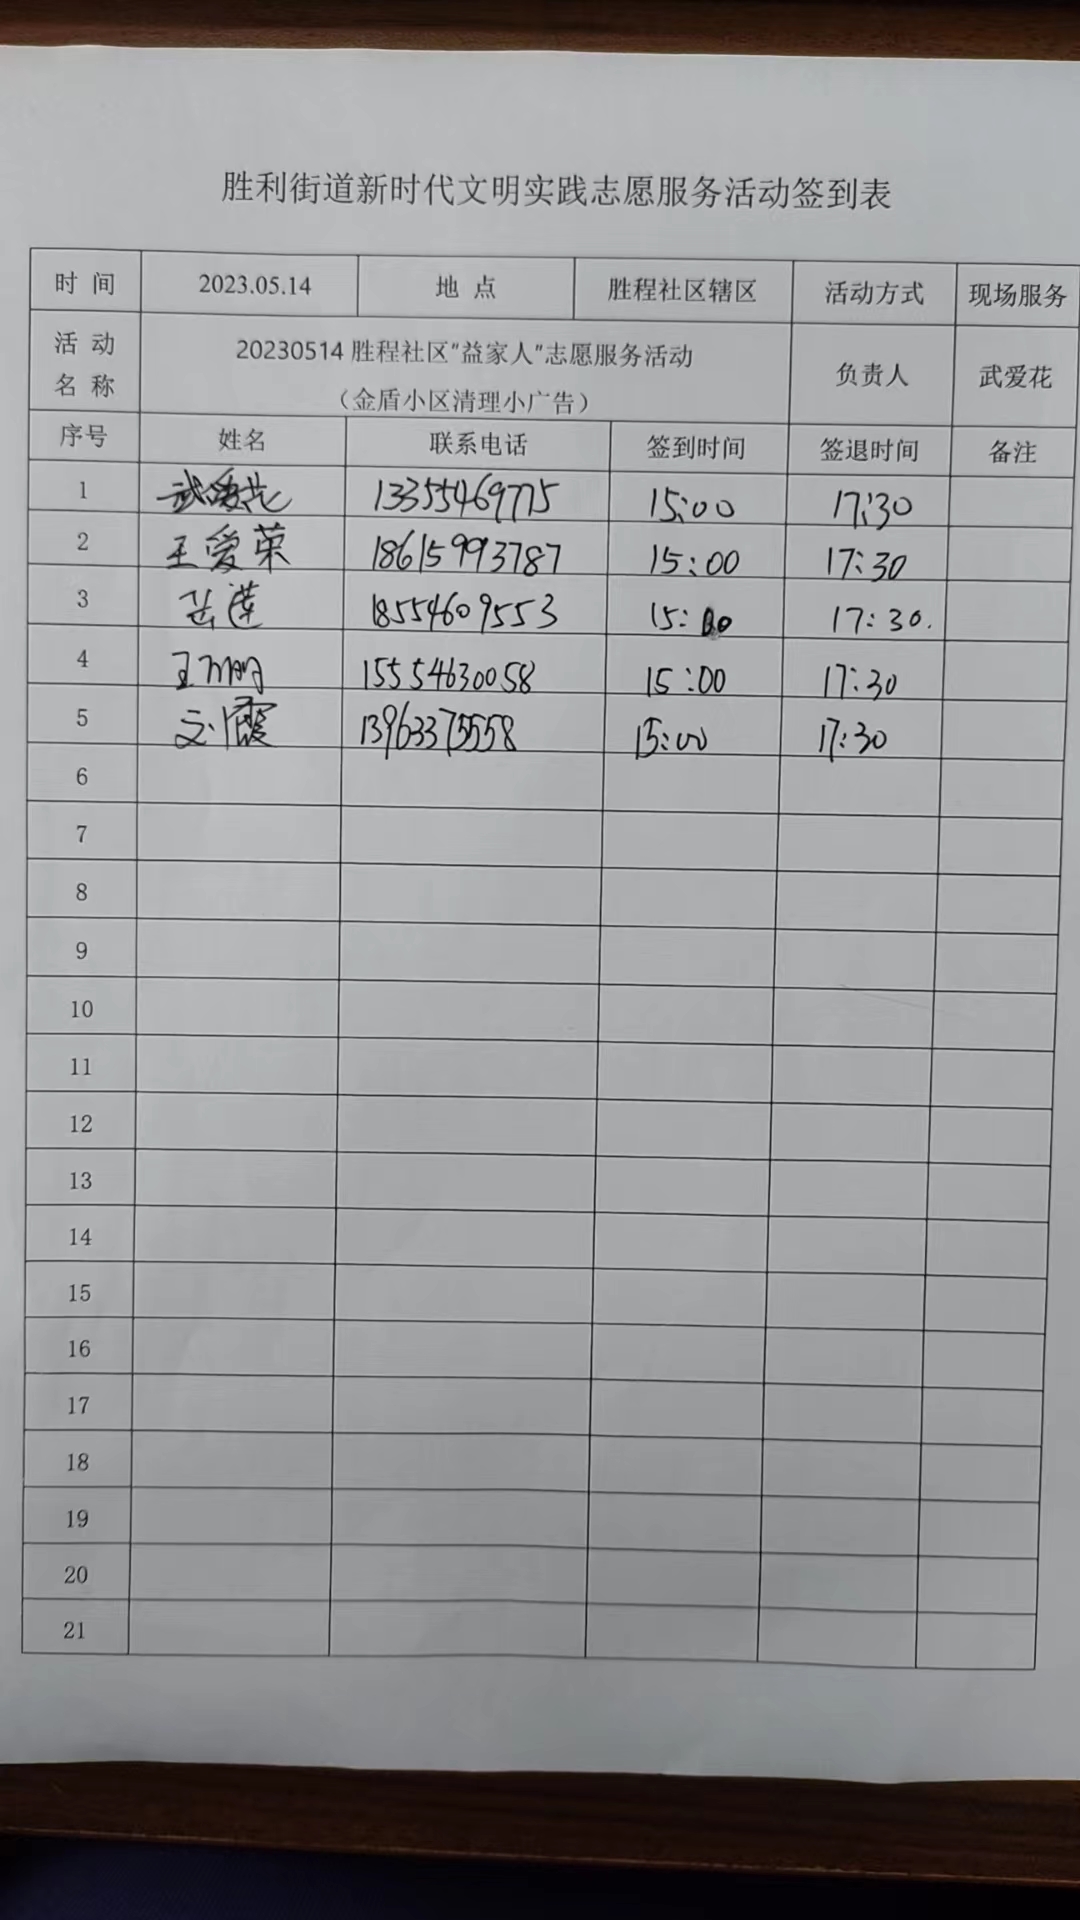 胜利街道新时代文明实践志愿服务活动签到表
时 间 2023.05.14 地 点 胜程社区辖区 活动方式 现场服务
活 动 名 称 20230514 胜程社区"益家人"志愿服务活动 负责人 武爱花
（金盾小区清理小广告）
序号 姓名 联系电话 签到时间 签退时间 备注
1 武爱花 13355469775 15:00 17:30
2 王爱荣 18615993787 15:00 17:30
3 岳莲 18554609553 15:00 17:30.
4 王 15554630058 15:00 17:30
5 刘霞 13963375558 15:00 17:30
6
7
8
9
10
11
12
13
14
15
16
17
18
19
20
21